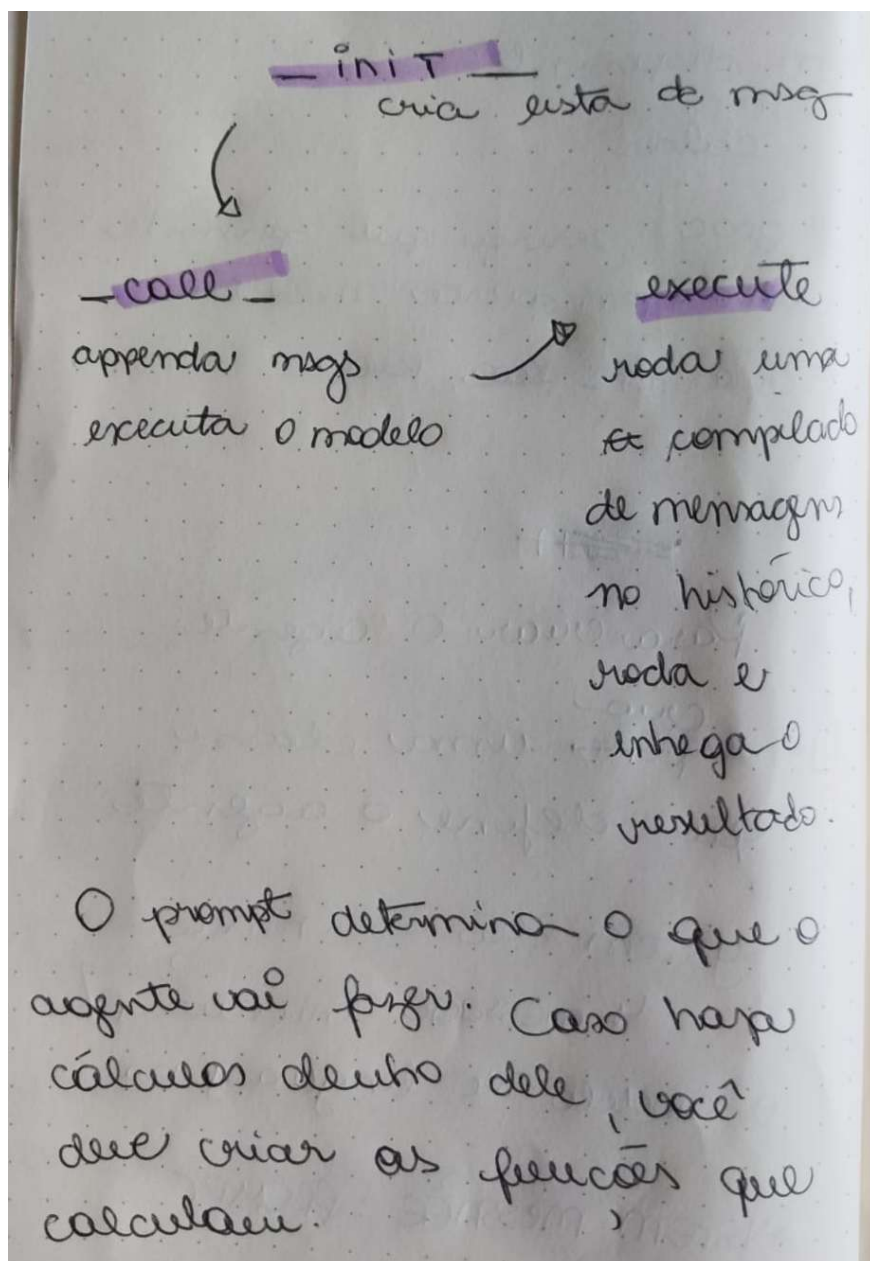 _ iniT _
cria lista de msg
_ call _
appenda msgs
executa o modelo
execute
roda uma
compilado
de mensagens
no histórico,
roda e
entrega o
resultado.
O prompt determina o que o
agente vai fazer. Caso haja
cálculos dentro dele, você
deve criar as funções que
calculam.